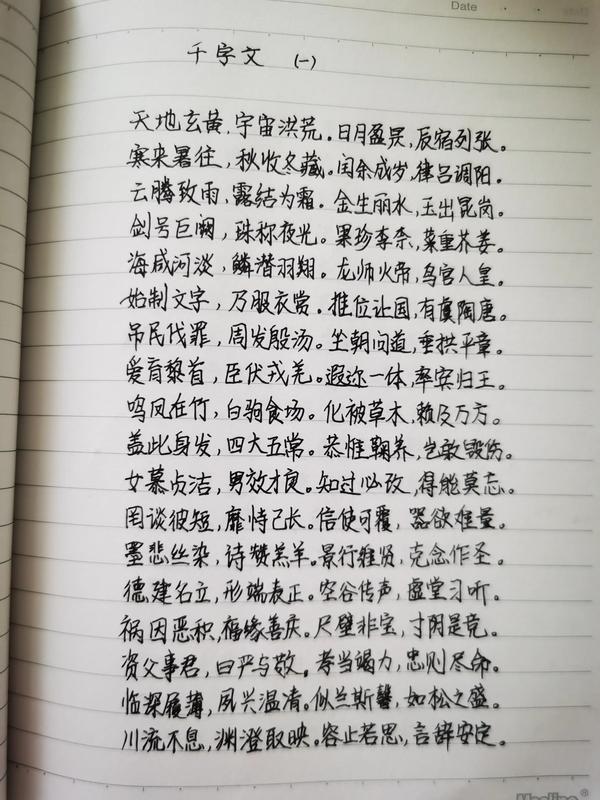 Date
千字文 (一)
天地玄黄,宇宙洪荒。日月盈昃,辰宿列张。
寒来暑往,秋收冬藏。闰余成岁,律吕调阳。
云腾致雨,露结为霜。金生丽水,玉出昆岗。
剑号巨阙,珠称夜光。果珍李柰,菜重芥姜。
海咸河淡,鳞潜羽翔。龙师火帝,鸟官人皇。
始制文字,乃服衣裳。推位让国,有虞陶唐。
吊民伐罪,周发殷汤。坐朝问道,垂拱平章。
爱育黎首,臣伏戎羌。遐迩一体,率宾归王。
鸣凤在竹,白驹食场。化被草木,赖及万方。
盖此身发,四大五常。恭惟鞠养,岂敢毁伤。
女慕贞洁,男效才良。知过必改,得能莫忘。
罔谈彼短,靡恃己长。信使可覆,器欲难量。
墨悲丝染,诗赞羔羊。景行维贤,克念作圣。
德建名立,形端表正。空谷传声,虚堂习听。
祸因恶积,福缘善庆。尺璧非宝,寸阴是竞。
资父事君,曰严与敬。孝当竭力,忠则尽命。
临深履薄,夙兴温凊。似兰斯馨,如松之盛。
川流不息,渊澄取映。容止若思,言辞安定。